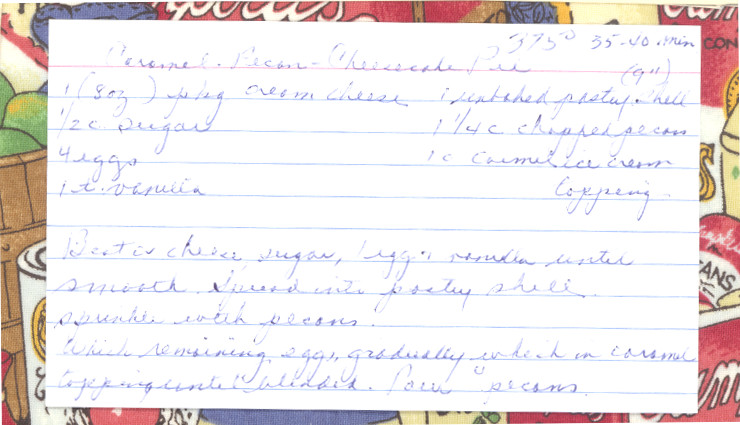 375° 35-40 min
Caramel-Pecan-Cheesecake Pie
(9")
1 (8oz) pkg cream cheese 1 unbaked pastry shell
1/2 c. sugar 1 1/4 c chopped pecans
4 eggs 1 c carmel ice cream
1 t. vanilla topping
Beat cheese sugar, 1 egg & vanilla until
smooth. Spread into pastry shell.
sprinkle with pecans.
Which remaining eggs, gradually which in caramel
topping until blended. Pour " pecans.
CON
ANS